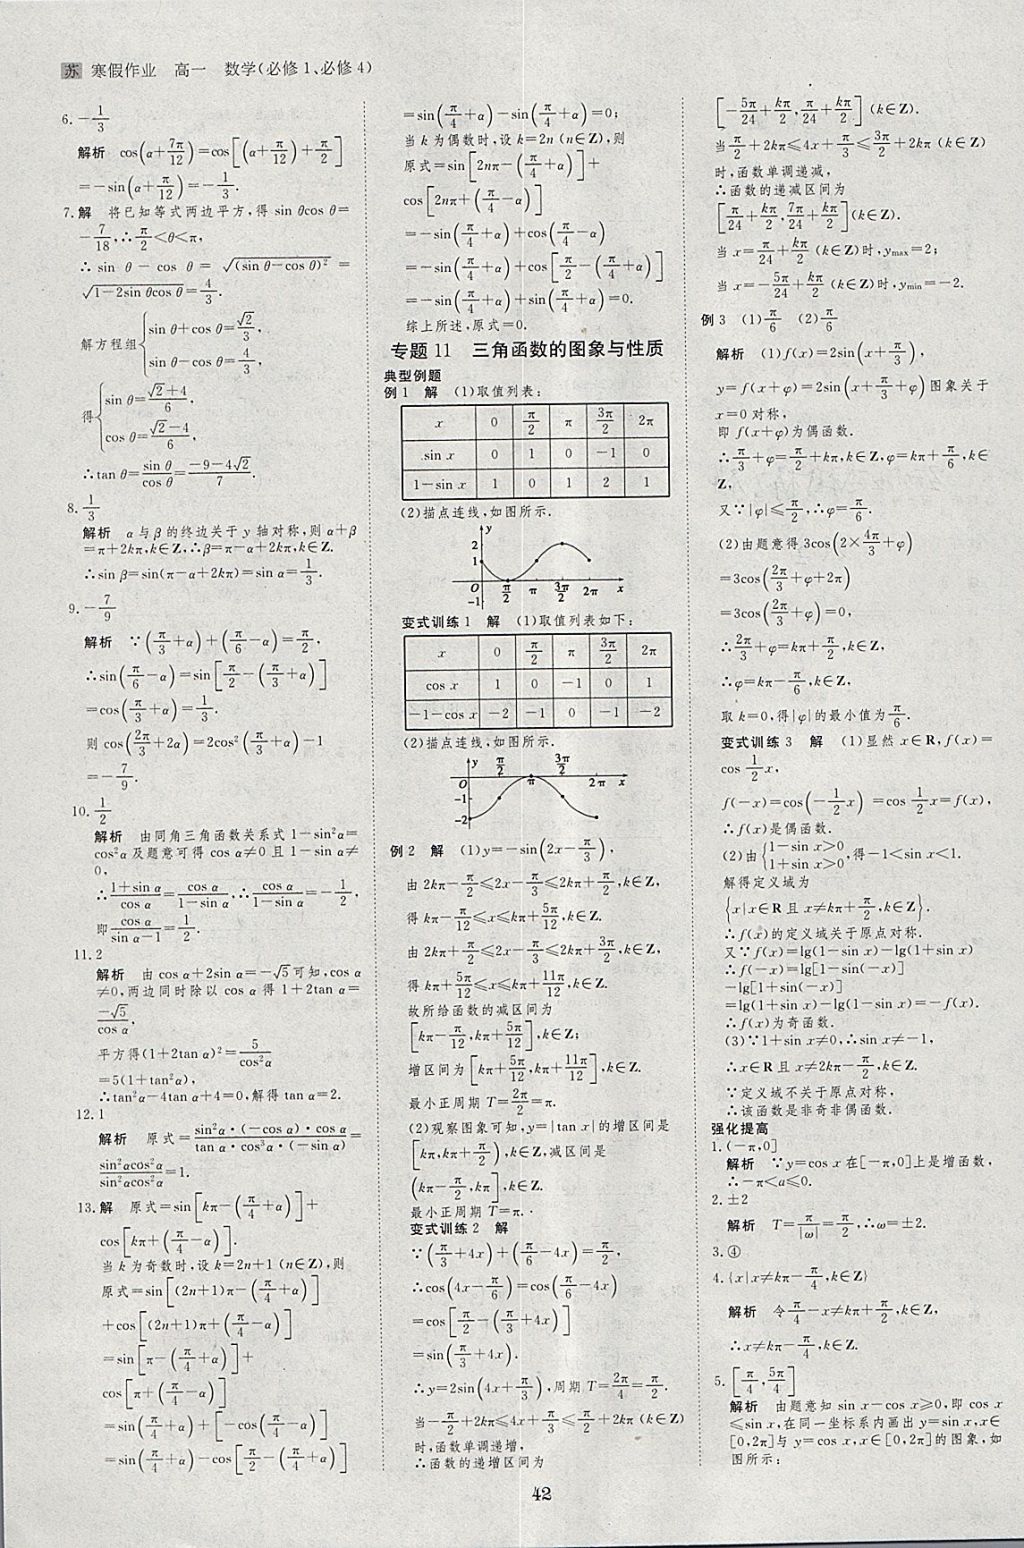 苏 寒假作业 高一 数学(必修1、必修4)
6. -1/3
解析 cos(α+7π/12)=cos[(α+π/12)+π/2]
=-sin(α+π/12)=-1/3.
7. 解 将已知等式两边平方,得 sin θcos θ=
-7/18,∴π/2<θ<π,
∴sin θ-cos θ=√((sin θ-cos θ)²)=
√(1-2sin θcos θ)=4/3.
解方程组{sin θ+cos θ=√2/3,
sin θ-cos θ=4/3,
得{sin θ=(√2+4)/6,
cos θ=(√2-4)/6,
∴tan θ=sin θ/cos θ=(-9-4√2)/7.
8. 1/3
解析 α与β的终边关于y轴对称,则α+β
=π+2kπ,k∈Z,∴β=π-α+2kπ,k∈Z.
∴sin β=sin(π-α+2kπ)=sin α=1/3.
9. -7/9
解析 ∵(π/3+α)+(π/6-α)=π/2,
∴sin(π/6-α)=sin[π/2-(π/3+α)]
=cos(π/3+α)=1/3.
则 cos(2π/3+2α)=2cos²(π/3+α)-1
=-7/9.
10. 1/2
解析 由同角三角函数关系式1-sin²α=
cos²α及题意可得 cos α≠0且1-sin α≠
0,
∴(1+sin α)/cos α=cos α/(1-sin α),∴cos α/(1-sin α)=-1/2,
即cos α/(sin α-1)=1/2.
11. 2
解析 由 cos α+2sin α=-√5可知,cos α
≠0,两边同时除以 cos α得 1+2tan α=
-√5/cos α,
平方得(1+2tan α)²=5/cos²α
=5(1+tan²α),
∴tan²α-4tan α+4=0,解得 tan α=2.
12. 1
解析 原式=sin²α·(-cos α)·cos α/(tan α·cos³α·(-sin α))=
sin²αcos²α/(sin²αcos²α)=1.
13. 解 原式=sin[kπ-(π/4+α)]+
cos[kπ+(π/4-α)].
当k为奇数时,设k=2n+1 (n∈Z),则
原式=sin[(2n+1)π-(π/4+α)]
+cos[(2n+1)π+(π/4-α)]
=sin[π-(π/4+α)]+
cos[π+(π/4-α)]
=sin(π/4+α)+[-cos(π/4-α)]
=sin(π/4+α)-cos[π/2-(π/4+α)]
=sin(π/4+α)-sin(π/4+α)=0;
当k为偶数时,设k=2n (n∈Z),则
原式=sin[2nπ-(π/4+α)]+
cos[2nπ+(π/4-α)]
=-sin(π/4+α)+cos(π/4-α)
=-sin(π/4+α)+cos[π/2-(π/4+α)]
=-sin(π/4+α)+sin(π/4+α)=0.
综上所述,原式=0.
专题11 三角函数的图象与性质
典型例题
例1 解 (1)取值列表:
x 0 π/2 π 3π/2 2π
sin x 0 1 0 -1 0
1-sin x 1 0 1 2 1
(2)描点连线,如图所示.
y
2
1
O π/2 π 3π/2 2π x
-1
变式训练1 解 (1)取值列表如下:
x 0 π/2 π 3π/2 2π
cos x 1 0 -1 0 1
-1-cos x -2 -1 0 -1 -2
(2)描点连线,如图所示.
y π/2 3π/2
O π 2π x
-1
-2
例2 解 (1)y=-sin(2x-π/3),
由2kπ-π/2≤2x-π/3≤2kπ+π/2,k∈Z,
得kπ-π/12≤x≤kπ+5π/12,k∈Z.
由2kπ+π/2≤2x-π/3≤2kπ+3π/2,k∈Z,
得kπ+5π/12≤x≤kπ+11π/12,k∈Z.
故所给函数的减区间为
[kπ-π/12,kπ+5π/12],k∈Z;
增区间为[kπ+5π/12,kπ+11π/12],k∈Z.
最小正周期T=2π/2=π.
(2)观察图象可知,y=|tan x|的增区间是
[kπ,kπ+π/2),k∈Z,减区间是
(kπ-π/2,kπ],k∈Z.
最小正周期T=π.
变式训练2 解
∵(π/3+4x)+(π/6-4x)=π/2,
∴cos(4x-π/6)=cos(π/6-4x)
=cos[π/2-(π/3+4x)]
=sin(π/3+4x).
∴y=2sin(4x+π/3),周期T=2π/4=π/2.
当-π/2+2kπ≤4x+π/3≤π/2+2kπ(k∈Z)
时,函数单调递增,
∴函数的递增区间为
[-5π/24+kπ/2,π/24+kπ/2](k∈Z).
当π/2+2kπ≤4x+π/3≤3π/2+2kπ(k∈Z)
时,函数单调递减,
∴函数的递减区间为
[π/24+kπ/2,7π/24+kπ/2](k∈Z).
当x=π/24+kπ/2(k∈Z)时,ymax=2;
当x=-5π/24+kπ/2(k∈Z)时,ymin=-2.
例3 (1)π/6 (2)π/6
解析 (1)f(x)=2sin(x+π/3),
y=f(x+φ)=2sin(x+π/3+φ)图象关于
x=0对称,
即f(x+φ)为偶函数.
∴π/3+φ=π/2+kπ,k∈Z,φ=kπ+π/6,k∈
Z,
又∵|φ|≤π/2,∴φ=π/6.
(2)由题意得3cos(2×4π/3+φ)
=3cos(2π/3+φ+2π)
=3cos(2π/3+φ)=0,
∴2π/3+φ=kπ+π/2,k∈Z,
∴φ=kπ-π/6,k∈Z,
取k=0,得|φ|的最小值为π/6.
变式训练3 解 (1)显然x∈R,f(x)=
cos 1/2 x,
f(-x)=cos(-1/2 x)=cos 1/2 x=f(x),
∴f(x)是偶函数.
(2)由{1-sin x>0
1+sin x>0,得-1<sin x<1.
解得定义域为
{x|x∈R且x≠kπ+π/2,k∈Z}.
∴f(x)的定义域关于原点对称.
又∵f(x)=lg(1-sin x)-lg(1+sin x)
∴f(-x)=lg[1-sin(-x)]
-lg[1+sin(-x)]
=lg(1+sin x)-lg(1-sin x)=-f(x).
∴f(x)为奇函数.
(3)∵1+sin x≠0,∴sin x≠-1,
∴x∈R且x≠2kπ-π/2,k∈Z.
∵定义域不关于原点对称,
∴该函数是非奇非偶函数.
强化提高
1. (-π,0]
解析 ∵y=cos x在[-π,0]上是增函数,
∴-π<a≤0.
2. ±2
解析 T=π/|ω|=π/2,∴ω=±2.
3. ④
4. {x|x≠kπ-π/4,k∈Z}
解析 令π/4-x≠kπ+π/2,k∈Z,
∴x≠kπ-π/4,k∈Z.
5. [π/4,5π/4]
解析 由题意知 sin x-cos x≥0,即 cos x
≤sin x,在同一坐标系内画出y=sin x,x∈
[0,2π]与y=cos x,x∈[0,2π]的图象,如
图所示:
42